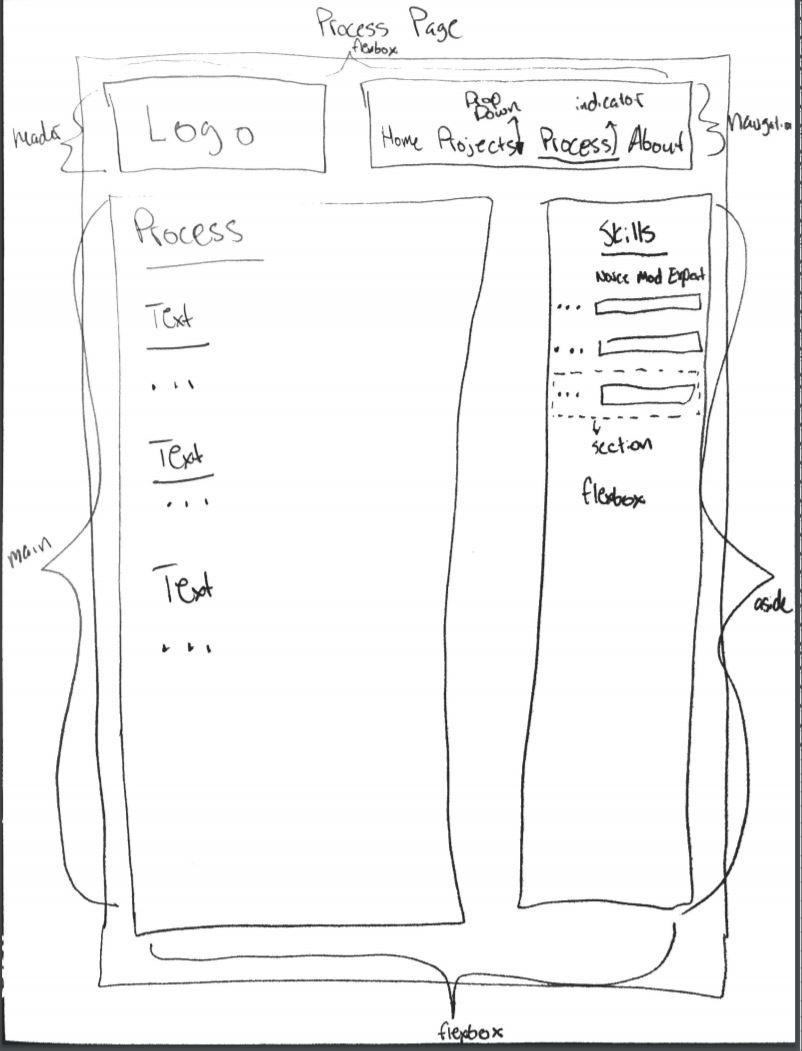 Process Page
flexbox
header
Logo
Drop
Down
indicator
Home Projects Process About
Navigation
Process
Text
...
Text
...
Text
...
main
Skills
Novice Mod Expert
...
...
...
section
flexbox
aside
flexbox